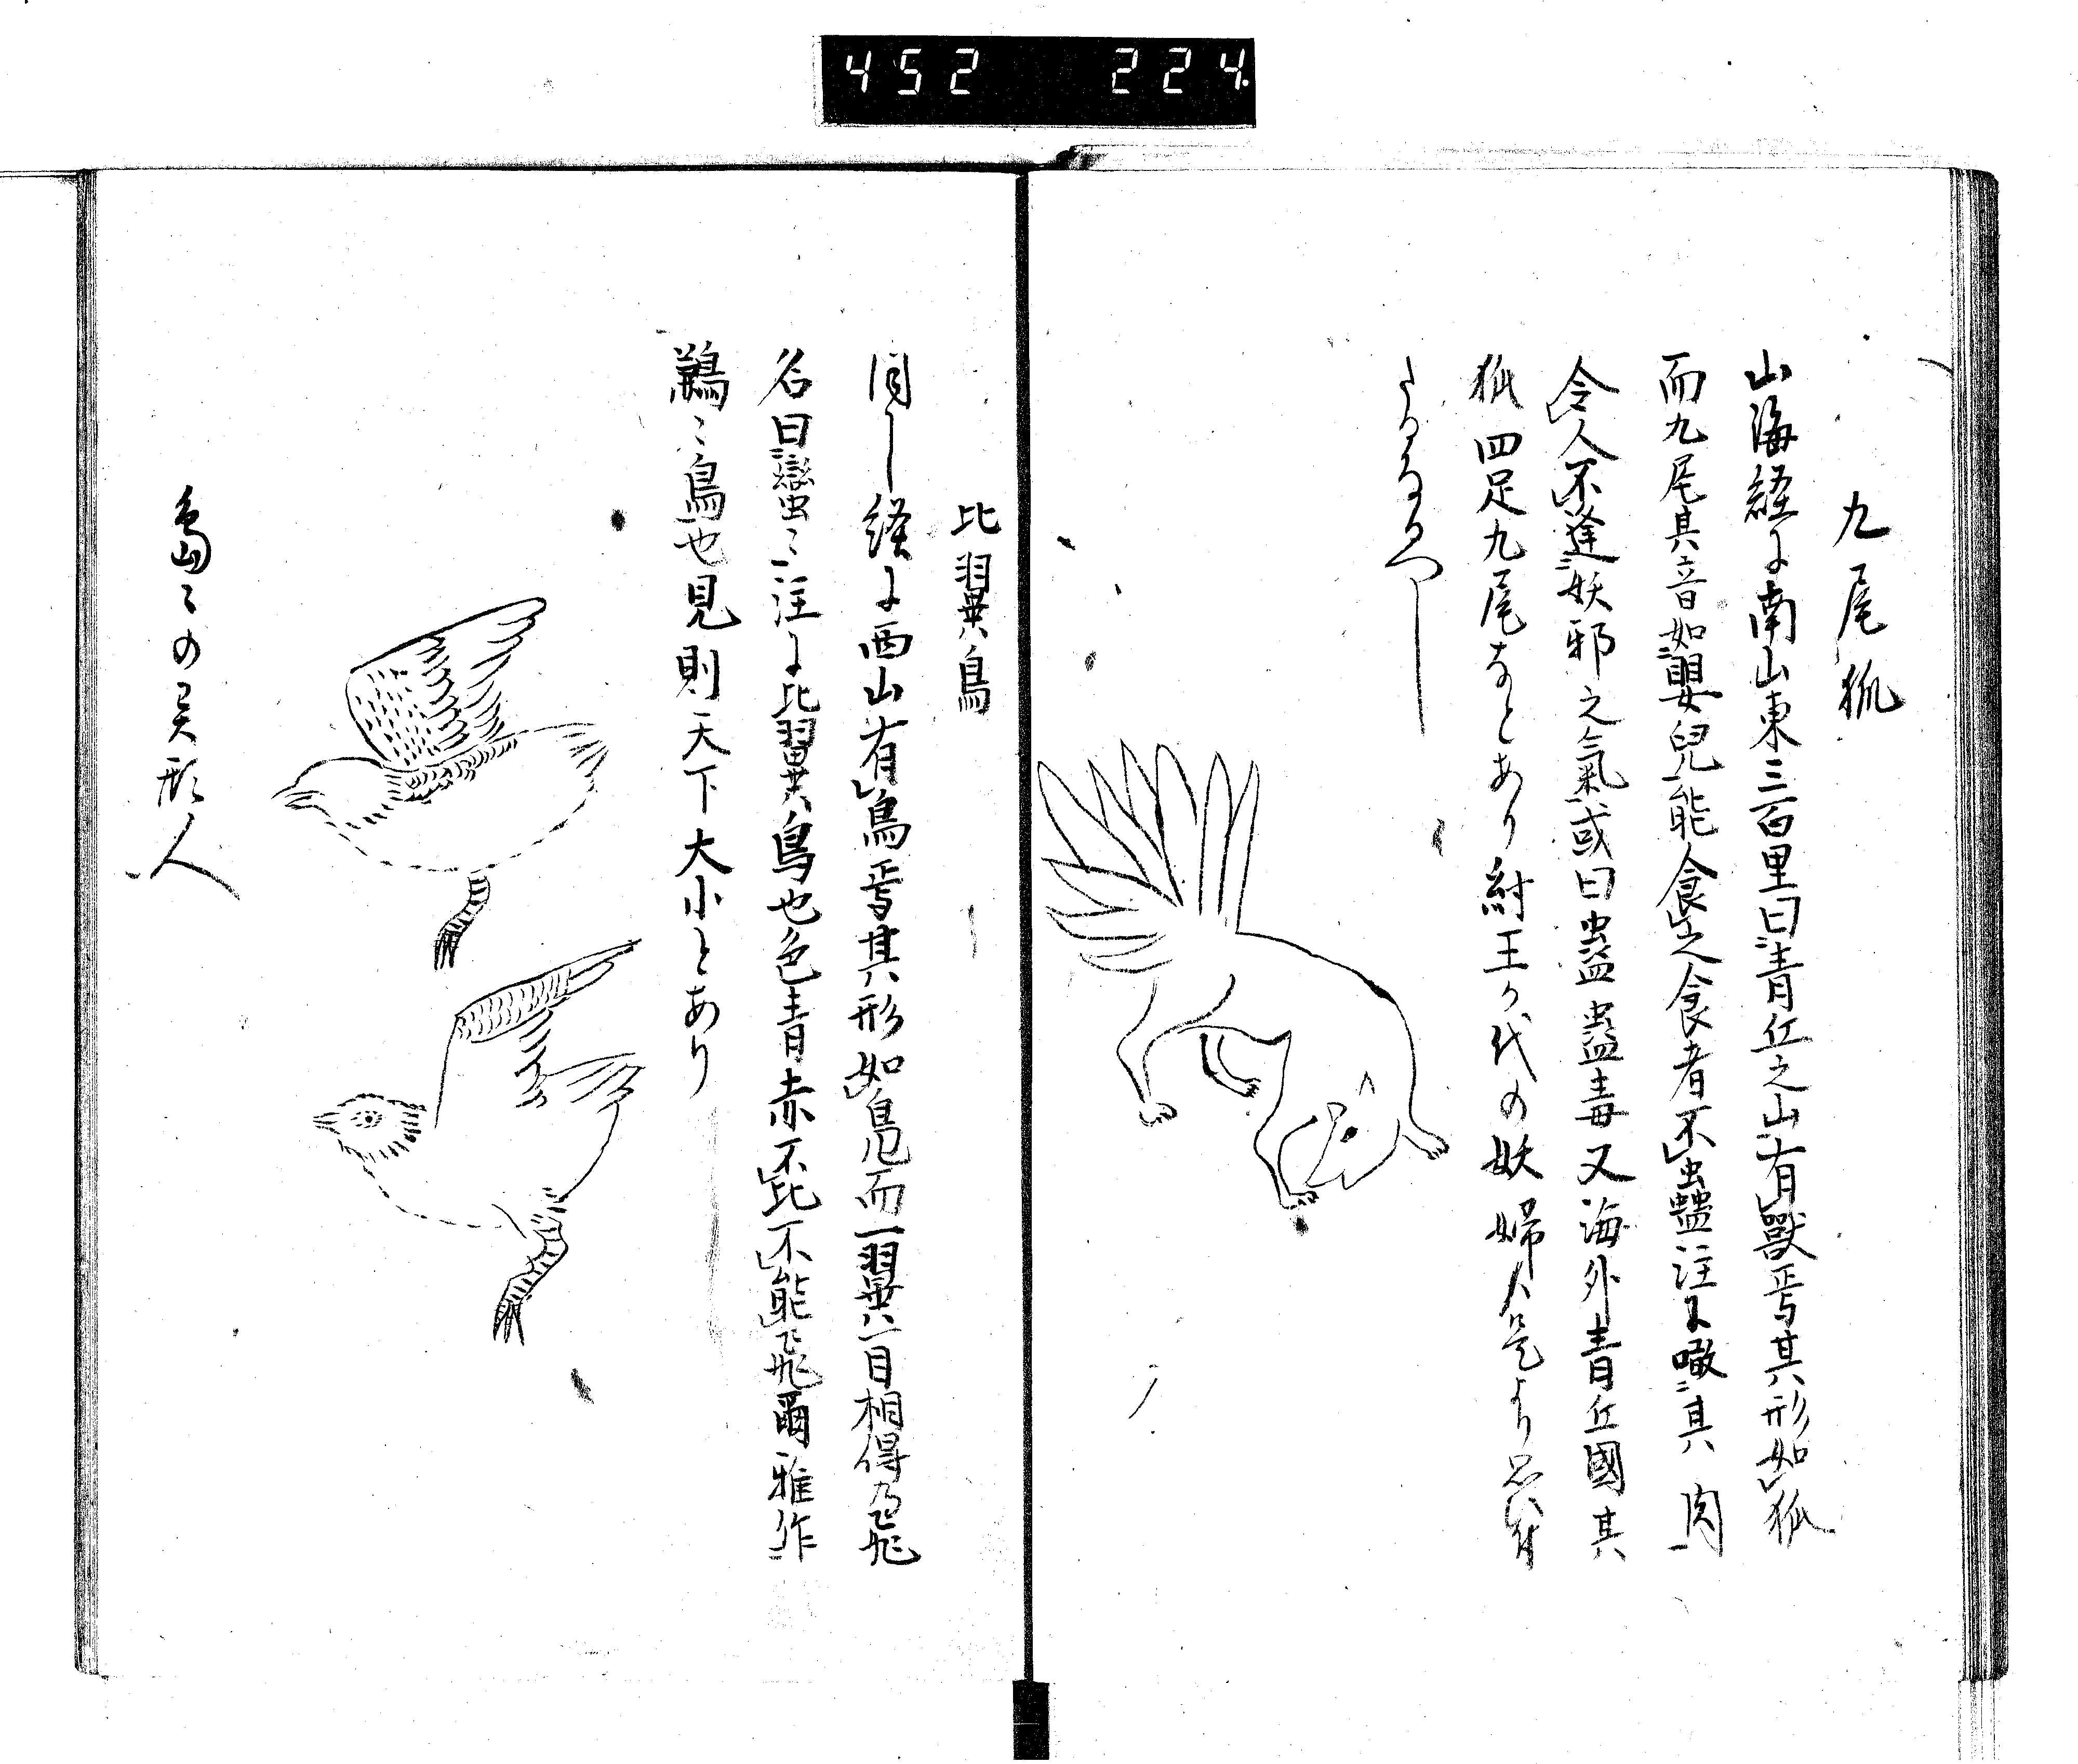 452 224
九尾狐
山海経に南山東三百里曰青丘之山有獸焉其形如狐
而九尾其音如嬰兒能食之食者不蠱注に噉其肉
令人不逢妖邪之氣或曰蠱蠱毒又海外青丘國其
狐四足九尾なとあり紂王か代の妖婦人是より思付
たるなるへし
比翼鳥
同し経に西山有鳥焉其形如鳧而一翼一目相得乃飛
名曰蠻〻注に比翼鳥也色青赤不比不能飛爾雅作
鶼〻鳥也見則天下大小とあり
島〻の异形人